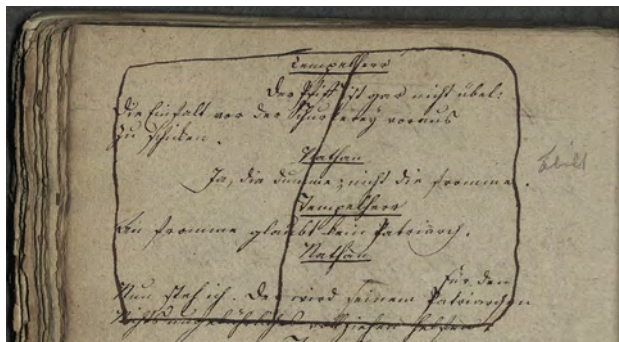 Tempelherr
Der Pfiff ist gar nicht übel:
Die Einfalt vor der Schurkerey voraus
Zu schicken.
Nathan
Ja, die dumme, nicht die fromme.
Fehlt
Tempelherr
An fromme glaubt kein Patriarch.
Nathan
Für den
Nun steh ich. Der wird seinem Patriarchen
Nichts ungebührliches vollziehen helfen.